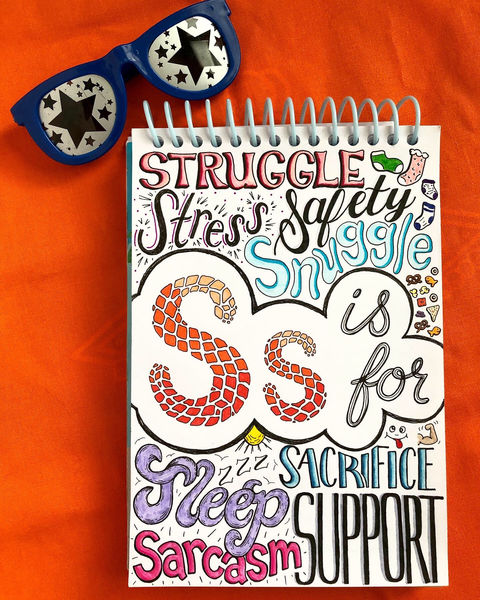 STRUGGLE
Stress Safety
Snuggle
Ss is
for
zzz
Sleep SACRIFICE
Sarcasm SUPPORT